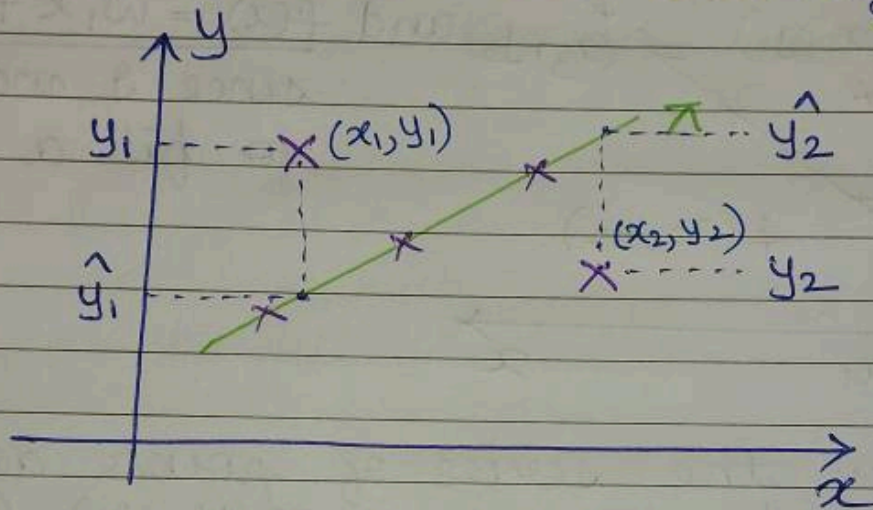 y
y₁ (x₁, y₁) π ŷ₂
(x₂, y₂)
ŷ₁ y₂
x